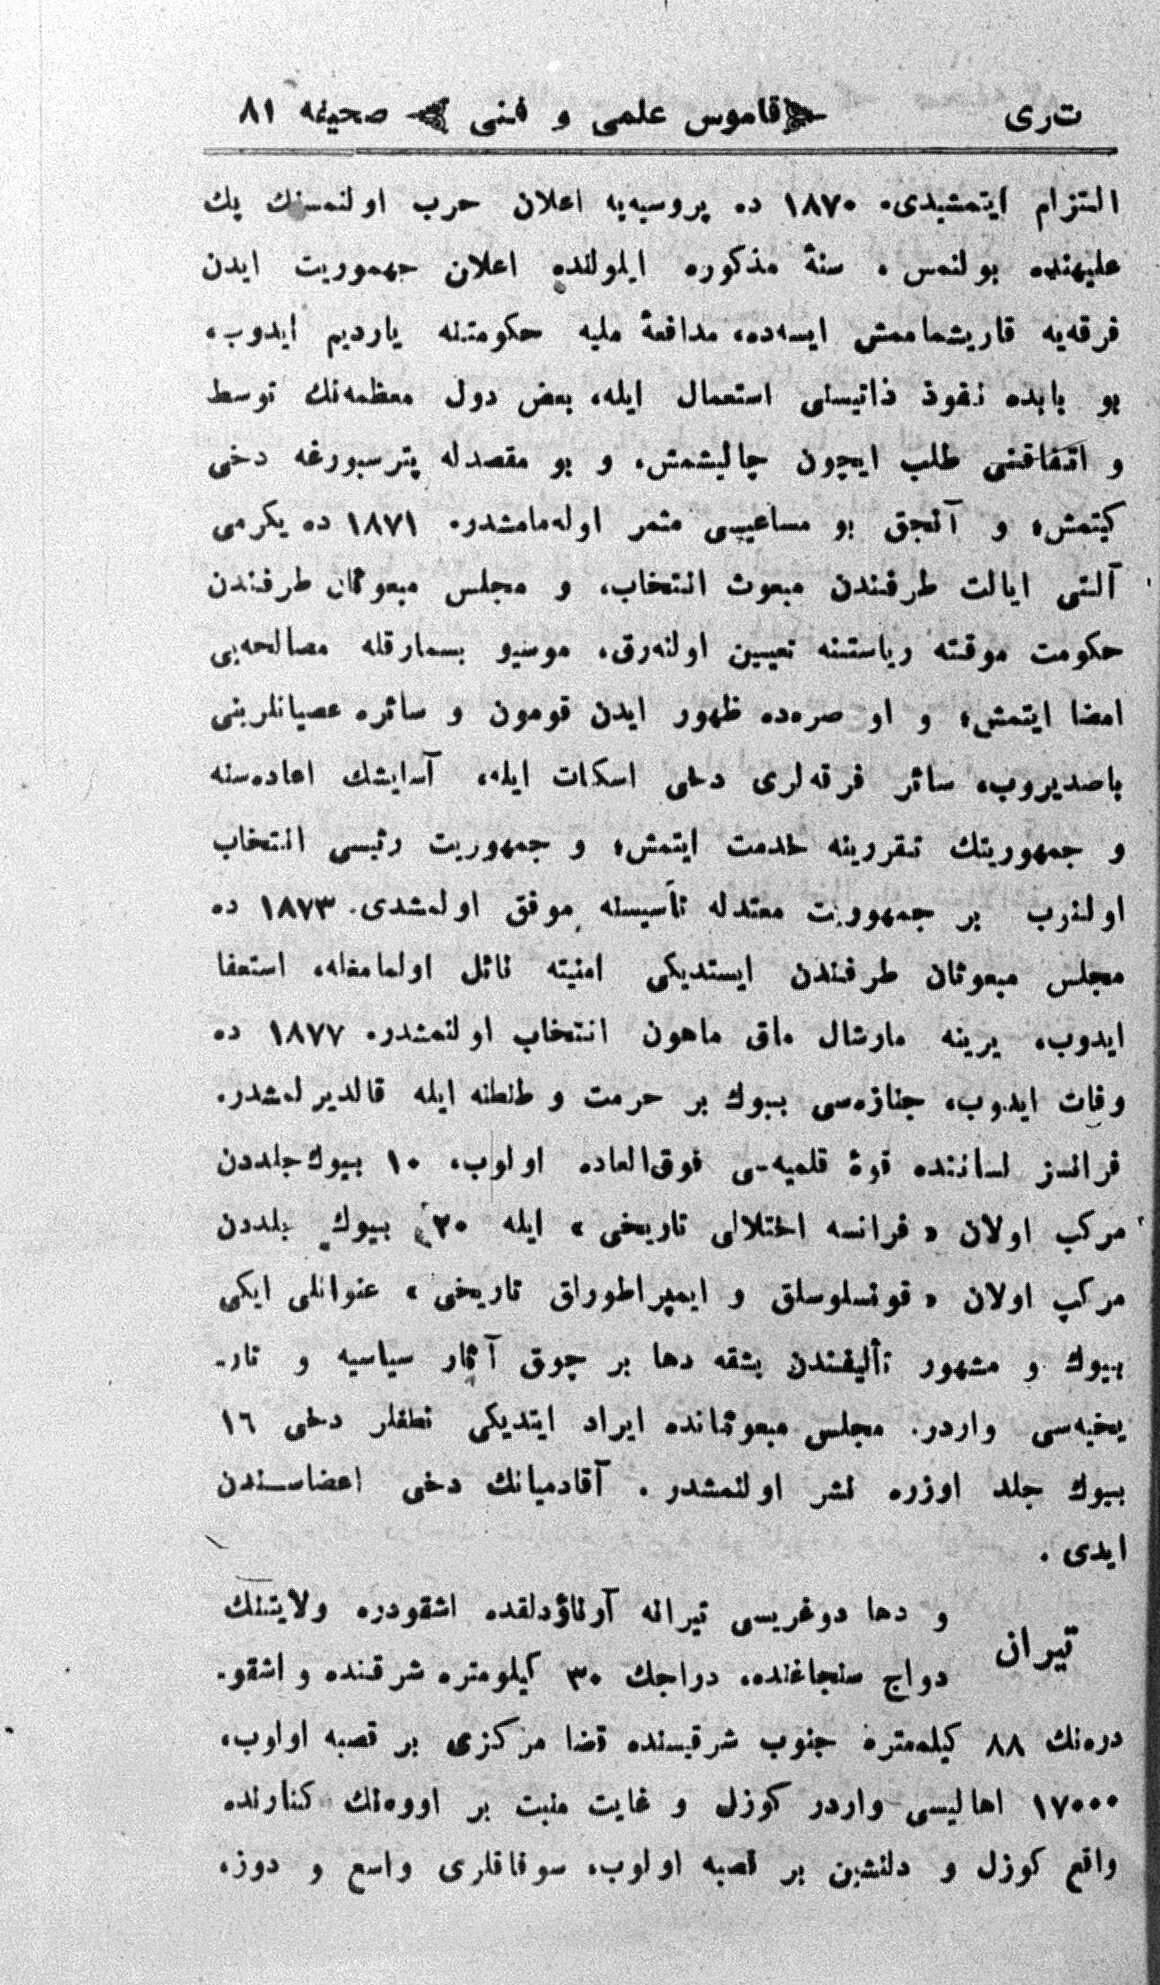 ت‌رى قاموس علمى و فنى صحیفه ٨١
التزام ایتمشیدى. ١٨٧٠ ده پروسیه‌یه اعلان حرب اولنمسنك پك
علیهنده بولنمس، سنهٔ مذكوره ایلولنده اعلان جمهوریت ایدن
فرقه‌یه قاریشماممش ایسه‌ده، مدافعهٔ ملیه حكومتنه یاردیم ایدوب،
بو بابده نفوذ ذاتیسنى استعمال ایله، بعض دول معظمه‌نك توسط
و اتفاقنى طلب ایچون چالیشمش، و بو مقصدله پترسبورغه دخى
كیتمش؛ و آنجق بو مساعیسى مثمر اوله‌مامشدر. ١٨٧١ ده یكرمى
آلتى ایالت طرفندن مبعوث انتخاب، و مجلس مبعوثان طرفندن
حكومت موقته ریاستنه تعیین اولنه‌رق، موسیو بسمارقله مصالحه‌یى
امضا ایتمش؛ و او صره‌ده ظهور ایدن قومون و سائره عصیانلرینى
باصدیروب، سائر فرقه‌لرى دخى اسكات ایله، آسایشك اعاده‌سنه
و جمهوریتك تقررینه خدمت ایتمش؛ و جمهوریت رئیسى انتخاب
اولنرب بر جمهوریت معتدله تأسیسنه موفق اولمشدى. ١٨٧٣ ده
مجلس مبعوثان طرفندن ایستدیكى امنیته نائل اولمامغله، استعفا
ایدوب، یرینه مارشال ماق ماهون انتخاب اولنمشدر. ١٨٧٧ ده
وفات ایدوب، جنازه‌سى بیوك بر حرمت و طنطنه ایله قالدیرلمشدر.
فرانسز لساننده قوهٔ قلمیه‌سى فوق‌العاده اولوب، ١٠ بیوك جلددن
مركب اولان « فرانسه اختلالى تاریخى » ایله ٢٠ بیوك جلددن
مركب اولان « قونسلوسلق و ایمپراطورلق تاریخى » عنوانلى ایكى
بیوك و مشهور تألیفندن بشقه دها بر چوق آثار سیاسیه و تار-
یخیه‌سى واردر. مجلس مبعوثانده ایراد ایتدیكى نطقلر دخى ١٦
بیوك جلد اوزره نشر اولنمشدر. آقادمیانك دخى اعضاسـندن
ایدى.
تیران و دها دوغریسى تیرانه آوناؤدلقده اشقودره ولایتنك
دواج سنجاغنده، دراجك ٣٠ كیلومتره شرقنده و اشقو-
دره‌نك ٨٨ كیلمتره جنوب شرقیسنده قضا مركزى بر قصبه اولوب،
١٧٠٠٠ اهالیسى واردر كوزل و غایت منبت بر اووه‌نك كنارنده
واقع كوزل و دلنشین بر قصبه اولوب، سوقاقلرى واسع و دوز،